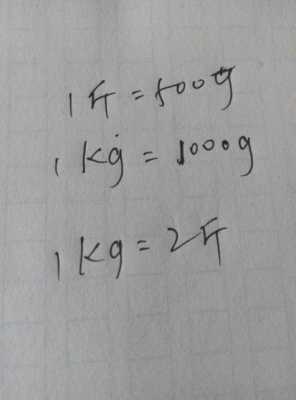 1斤=500g
1kg=1000g
1kg=2斤